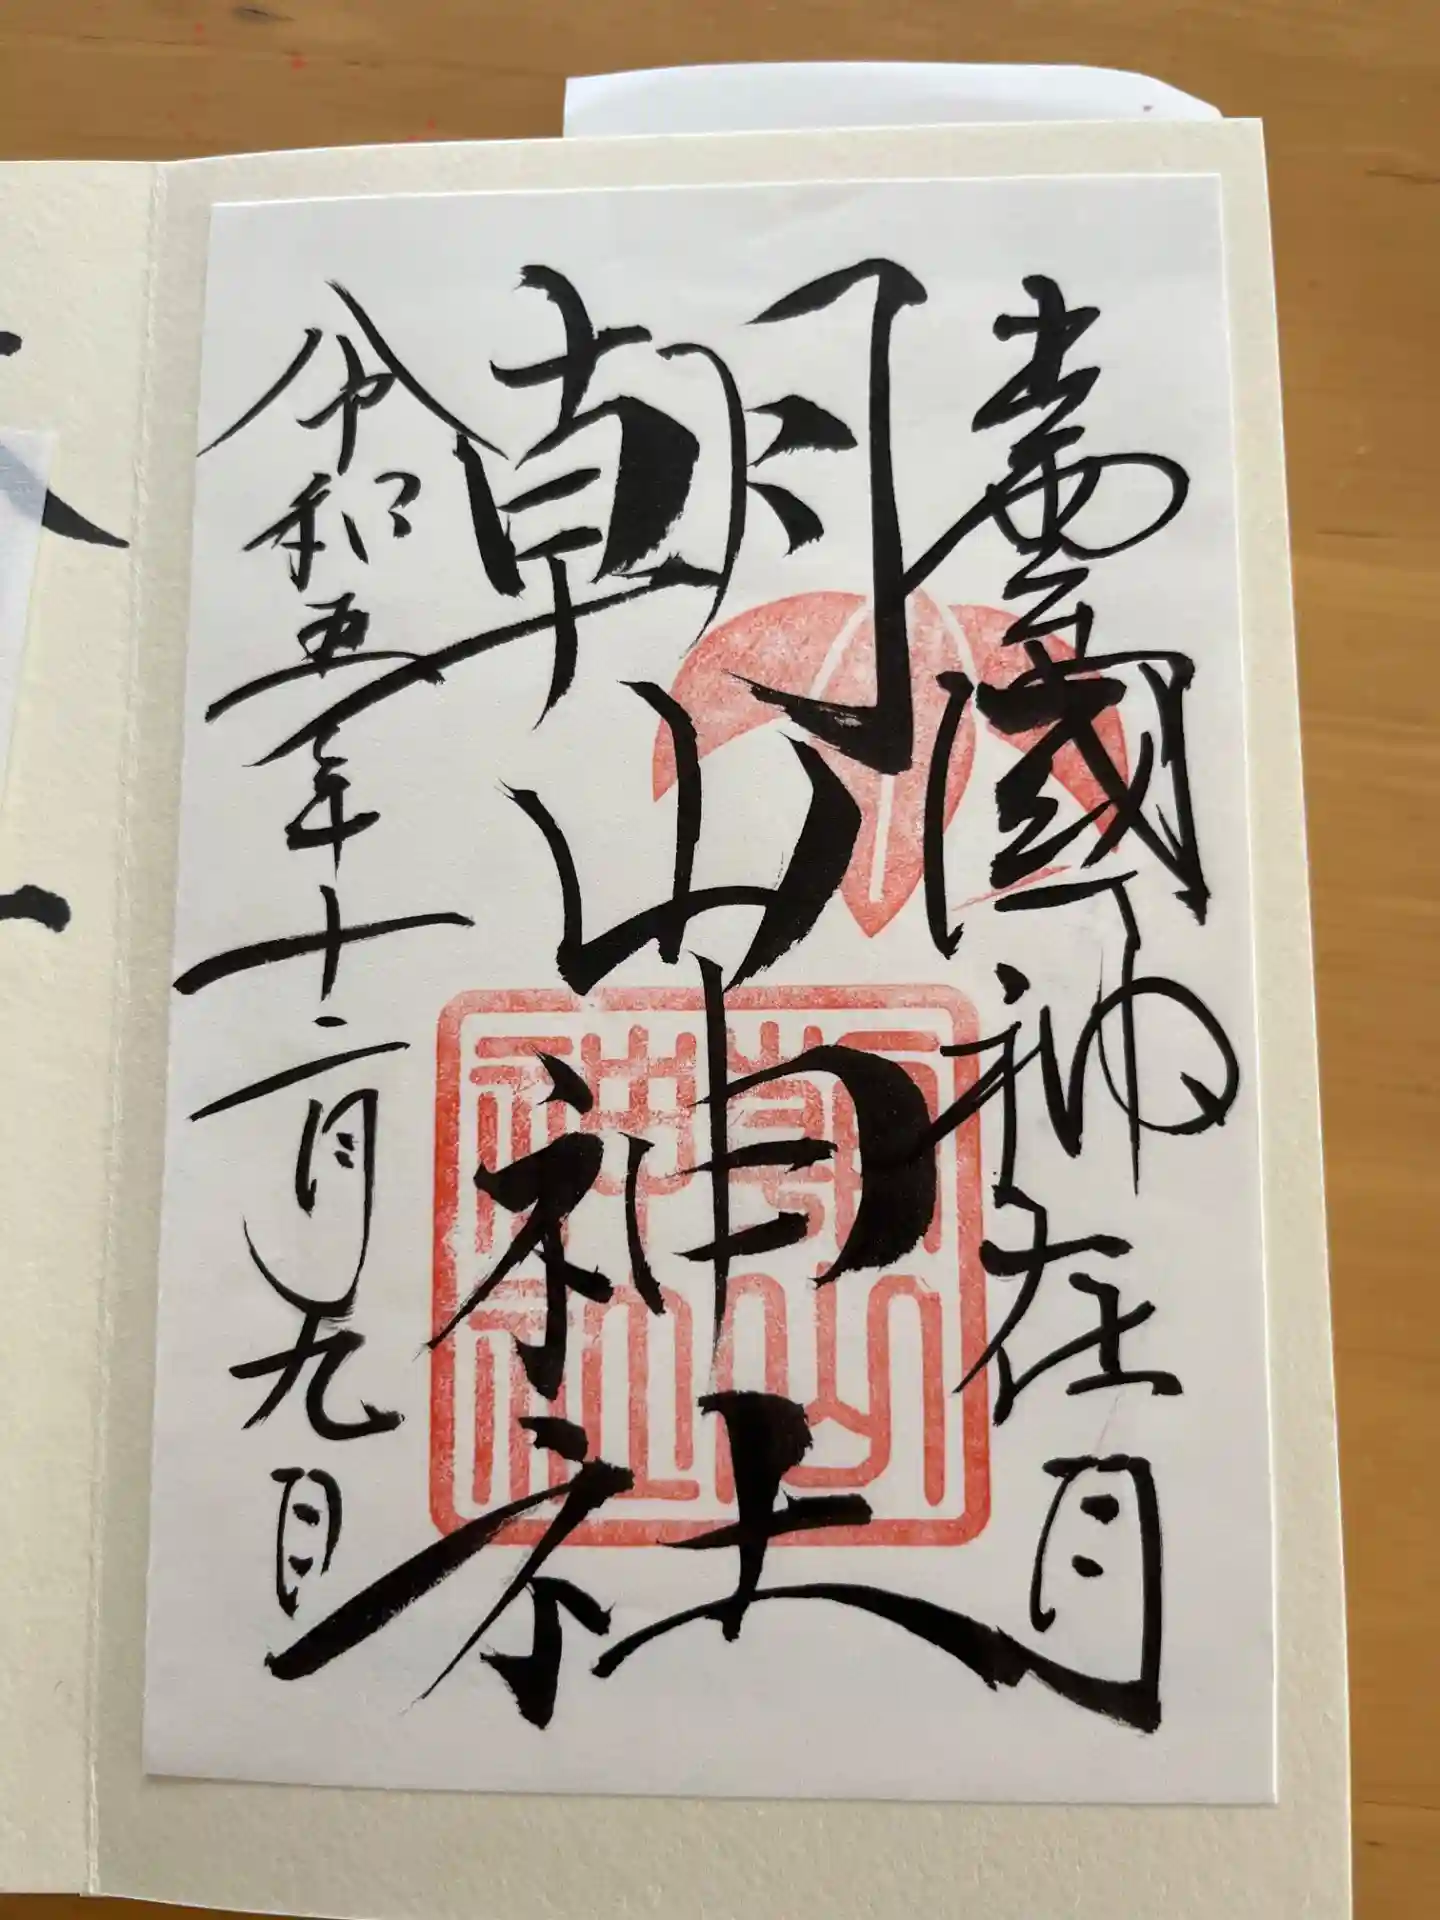 出雲國神在月
朝山神社
令和五年十二月九日
朝山神社